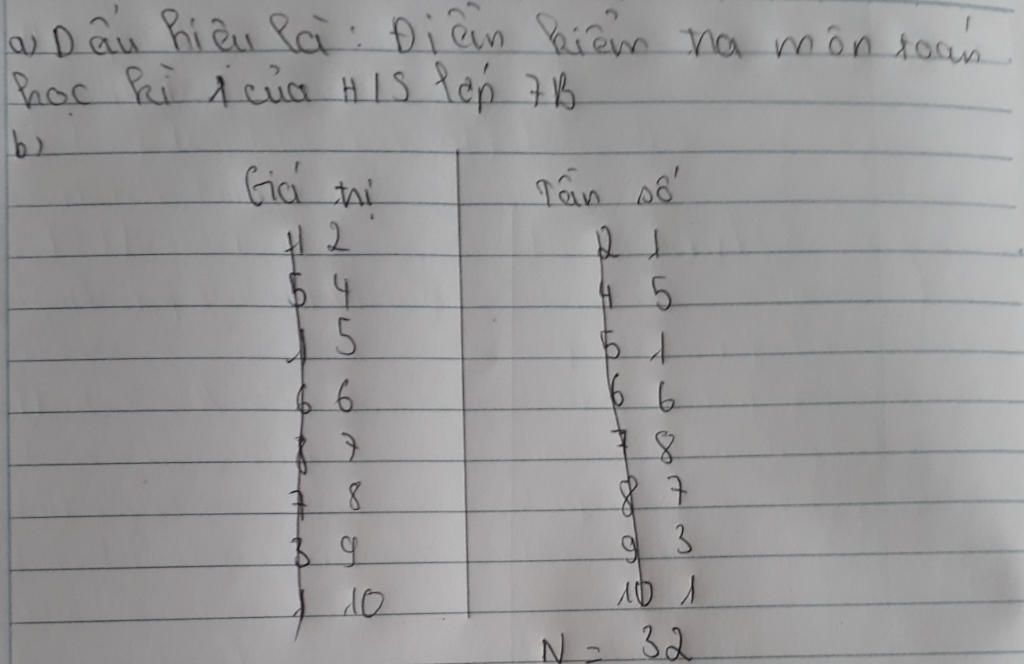 a) Dấu hiệu là: Điểm kiểm tra môn toán
học kì 1 của H/S lớp 7B
b)
Giá trị Tần số
2 1
4 5
5 1
6 6
7 8
8 7
9 3
10 1
N = 32